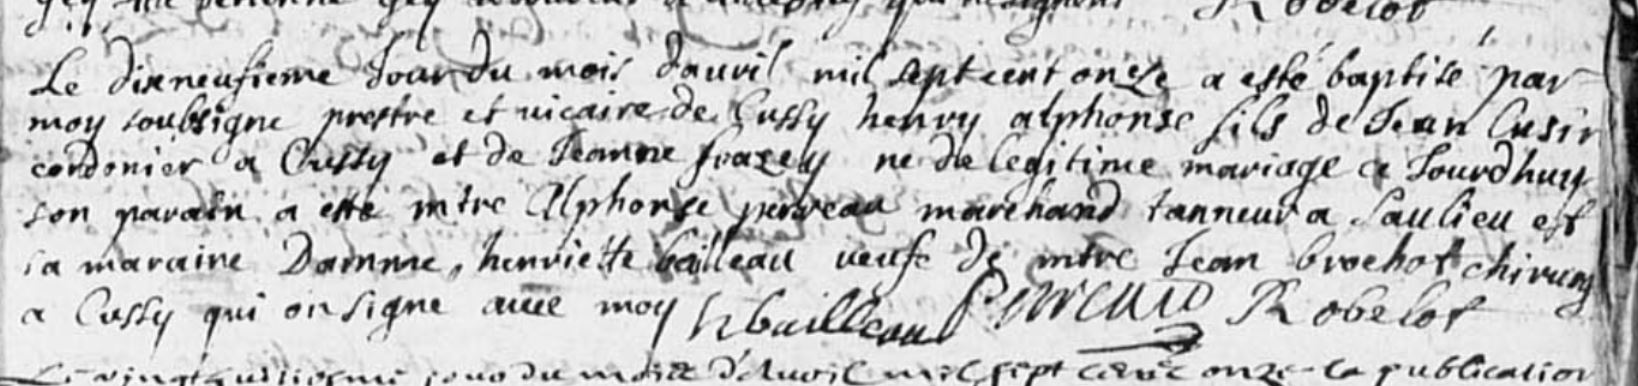 Robelot
Le dixneufieme Jour du mois dauvil mil sept cent onze a esté baptisé par
moy soubsigne prestre et vicaire de Cussy henry alphonse fils de Jean Cusin
cordonier a Cussy et de Jeanne ne de legitime mariage ce Jourdhuy
son parain a esté mtre Alphonse perreau marchand tanneur a Saulieu et
sa maraine Damme henriette bailleau veufe de mtre Jean brochot chirurg
a Cussy qui on signe avec moy h bailleau Perreau Robelot
Le jour du mois d'Avril mil sept cent onze la publication